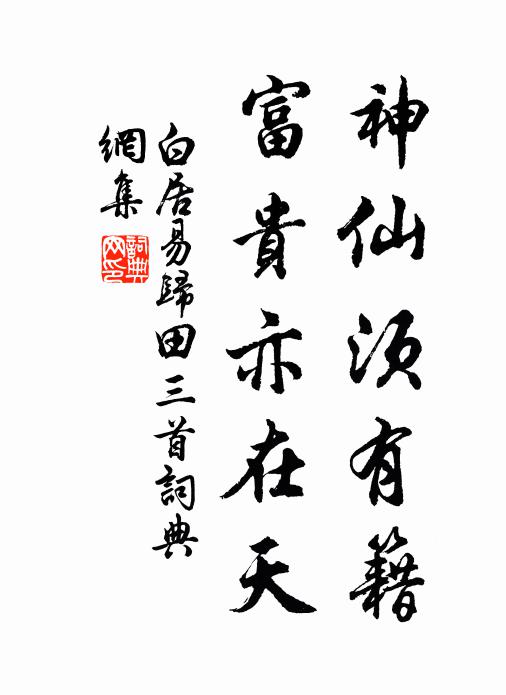 神仙須有籍
富貴亦在天
白居易歸田三首詞典
網集
詞典網印